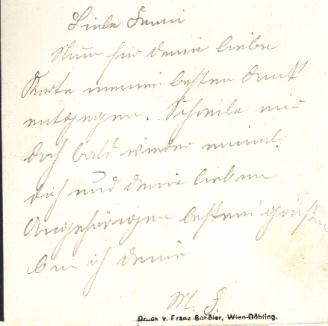 Liebe Fanni
Nimm für deine liebe
Karte meinen besten Dank
entgegen. Schreibe mir
doch bald wieder einmal.
dich und deine lieben
Angehörigen bestens grüßt
bin ich deine
M. F.
Druck v. Franz Sandler, Wien-Döbling.